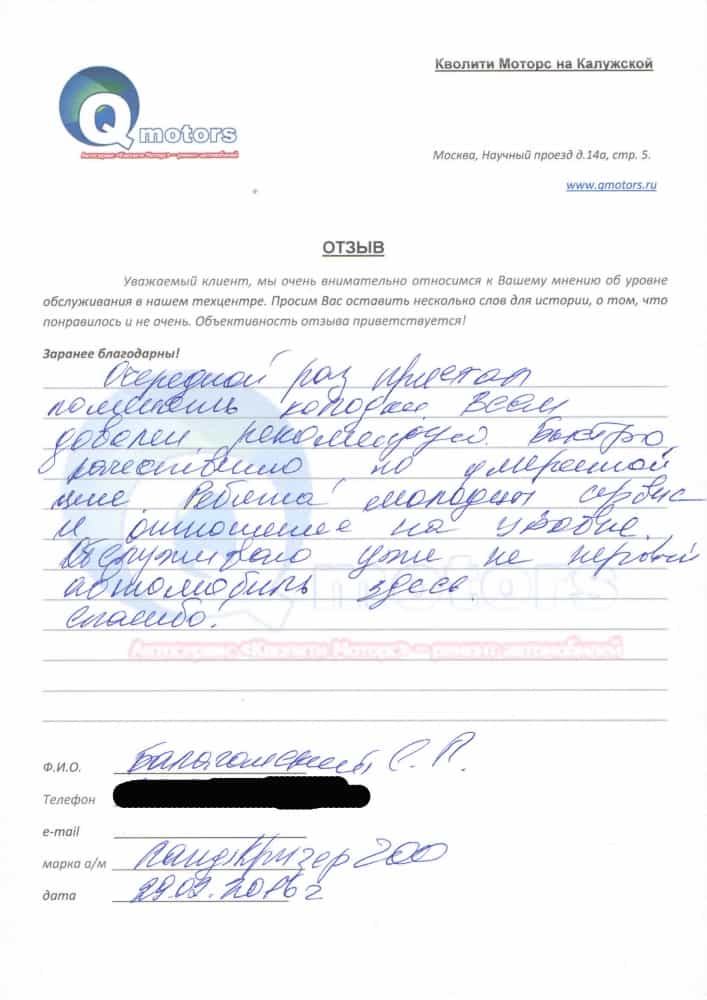 Кволити Моторс на Калужской
Q motors
Автосервис «Кволити Моторс» – ремонт автомобилей
Москва, Научный проезд д.14а, стр. 5.
www.qmotors.ru
ОТЗЫВ
Уважаемый клиент, мы очень внимательно относимся к Вашему мнению об уровне
обслуживания в нашем техцентре. Просим Вас оставить несколько слов для истории, о том, что
понравилось и не очень. Объективность отзыва приветствуется!
Заранее благодарны!
Очередной раз приехал
поменять колодки. Всем
доволен рекомендую. Быстро
качественно по умеренной
цене. Ребята молодцы сервис
и отношение на уровне.
Обслуживаю уже не первый
автомобиль здесь.
спасибо!
motors
Автосервис «Кволити Моторс» – ремонт автомобилей
Ф.И.О. С. П.
Телефон
e-mail
марка а/м Ланд Крузер 200
дата 29.02.2016 г